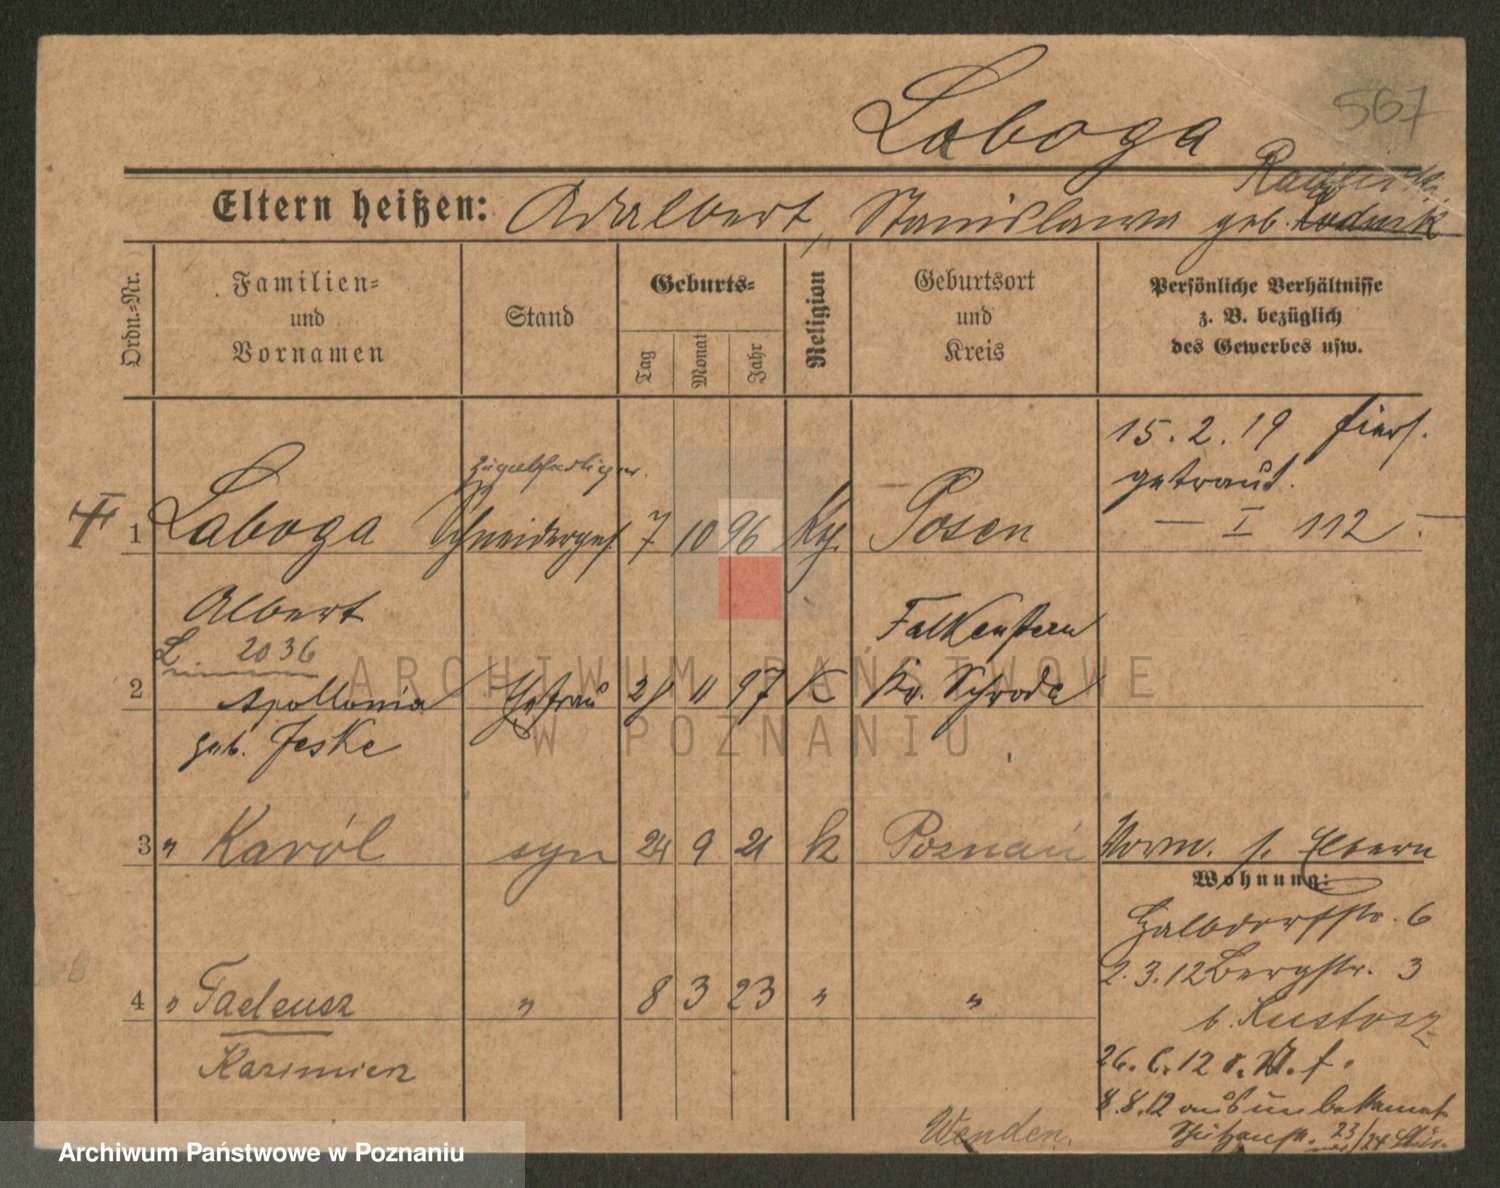 567
Laboga
Eltern heißen: Adalbert, Stanislawa geb. Rodnik
Ordn.-Nr.
Familien-
und
Vornamen
Stand
Geburts-
Tag
Monat
Jahr
Religion
Geburtsort
und
Kreis
Persönliche Verhältnisse
z. B. bezüglich
des Gewerbes usw.
15. 2. 19 hiers.
getraut.
— I 112. —
1 Laboga Schneiderges. 7 10 96 Kg. Posen
Albert
L. 2036
Falkenstein
2 Apollonia Ehefrau 28 11 97 K Kr. Schroda
geb. Jeske
3 " Karól syn 24 9 21 k Poznań
Vorm. s. Eltern
Wohnung:
Halbdorfstr. 6
2.3.12 Bergstr. 3
b. Kustosz
4 " Tadeusz " 8 3 23 " "
Kazimierz
26. 6. 12 v. A. f.
8.8.12 auf unbekannt
Wenden.
23/24
ARCHIWUM PAŃSTWOWE
W POZNANIU
Archiwum Państwowe w Poznaniu